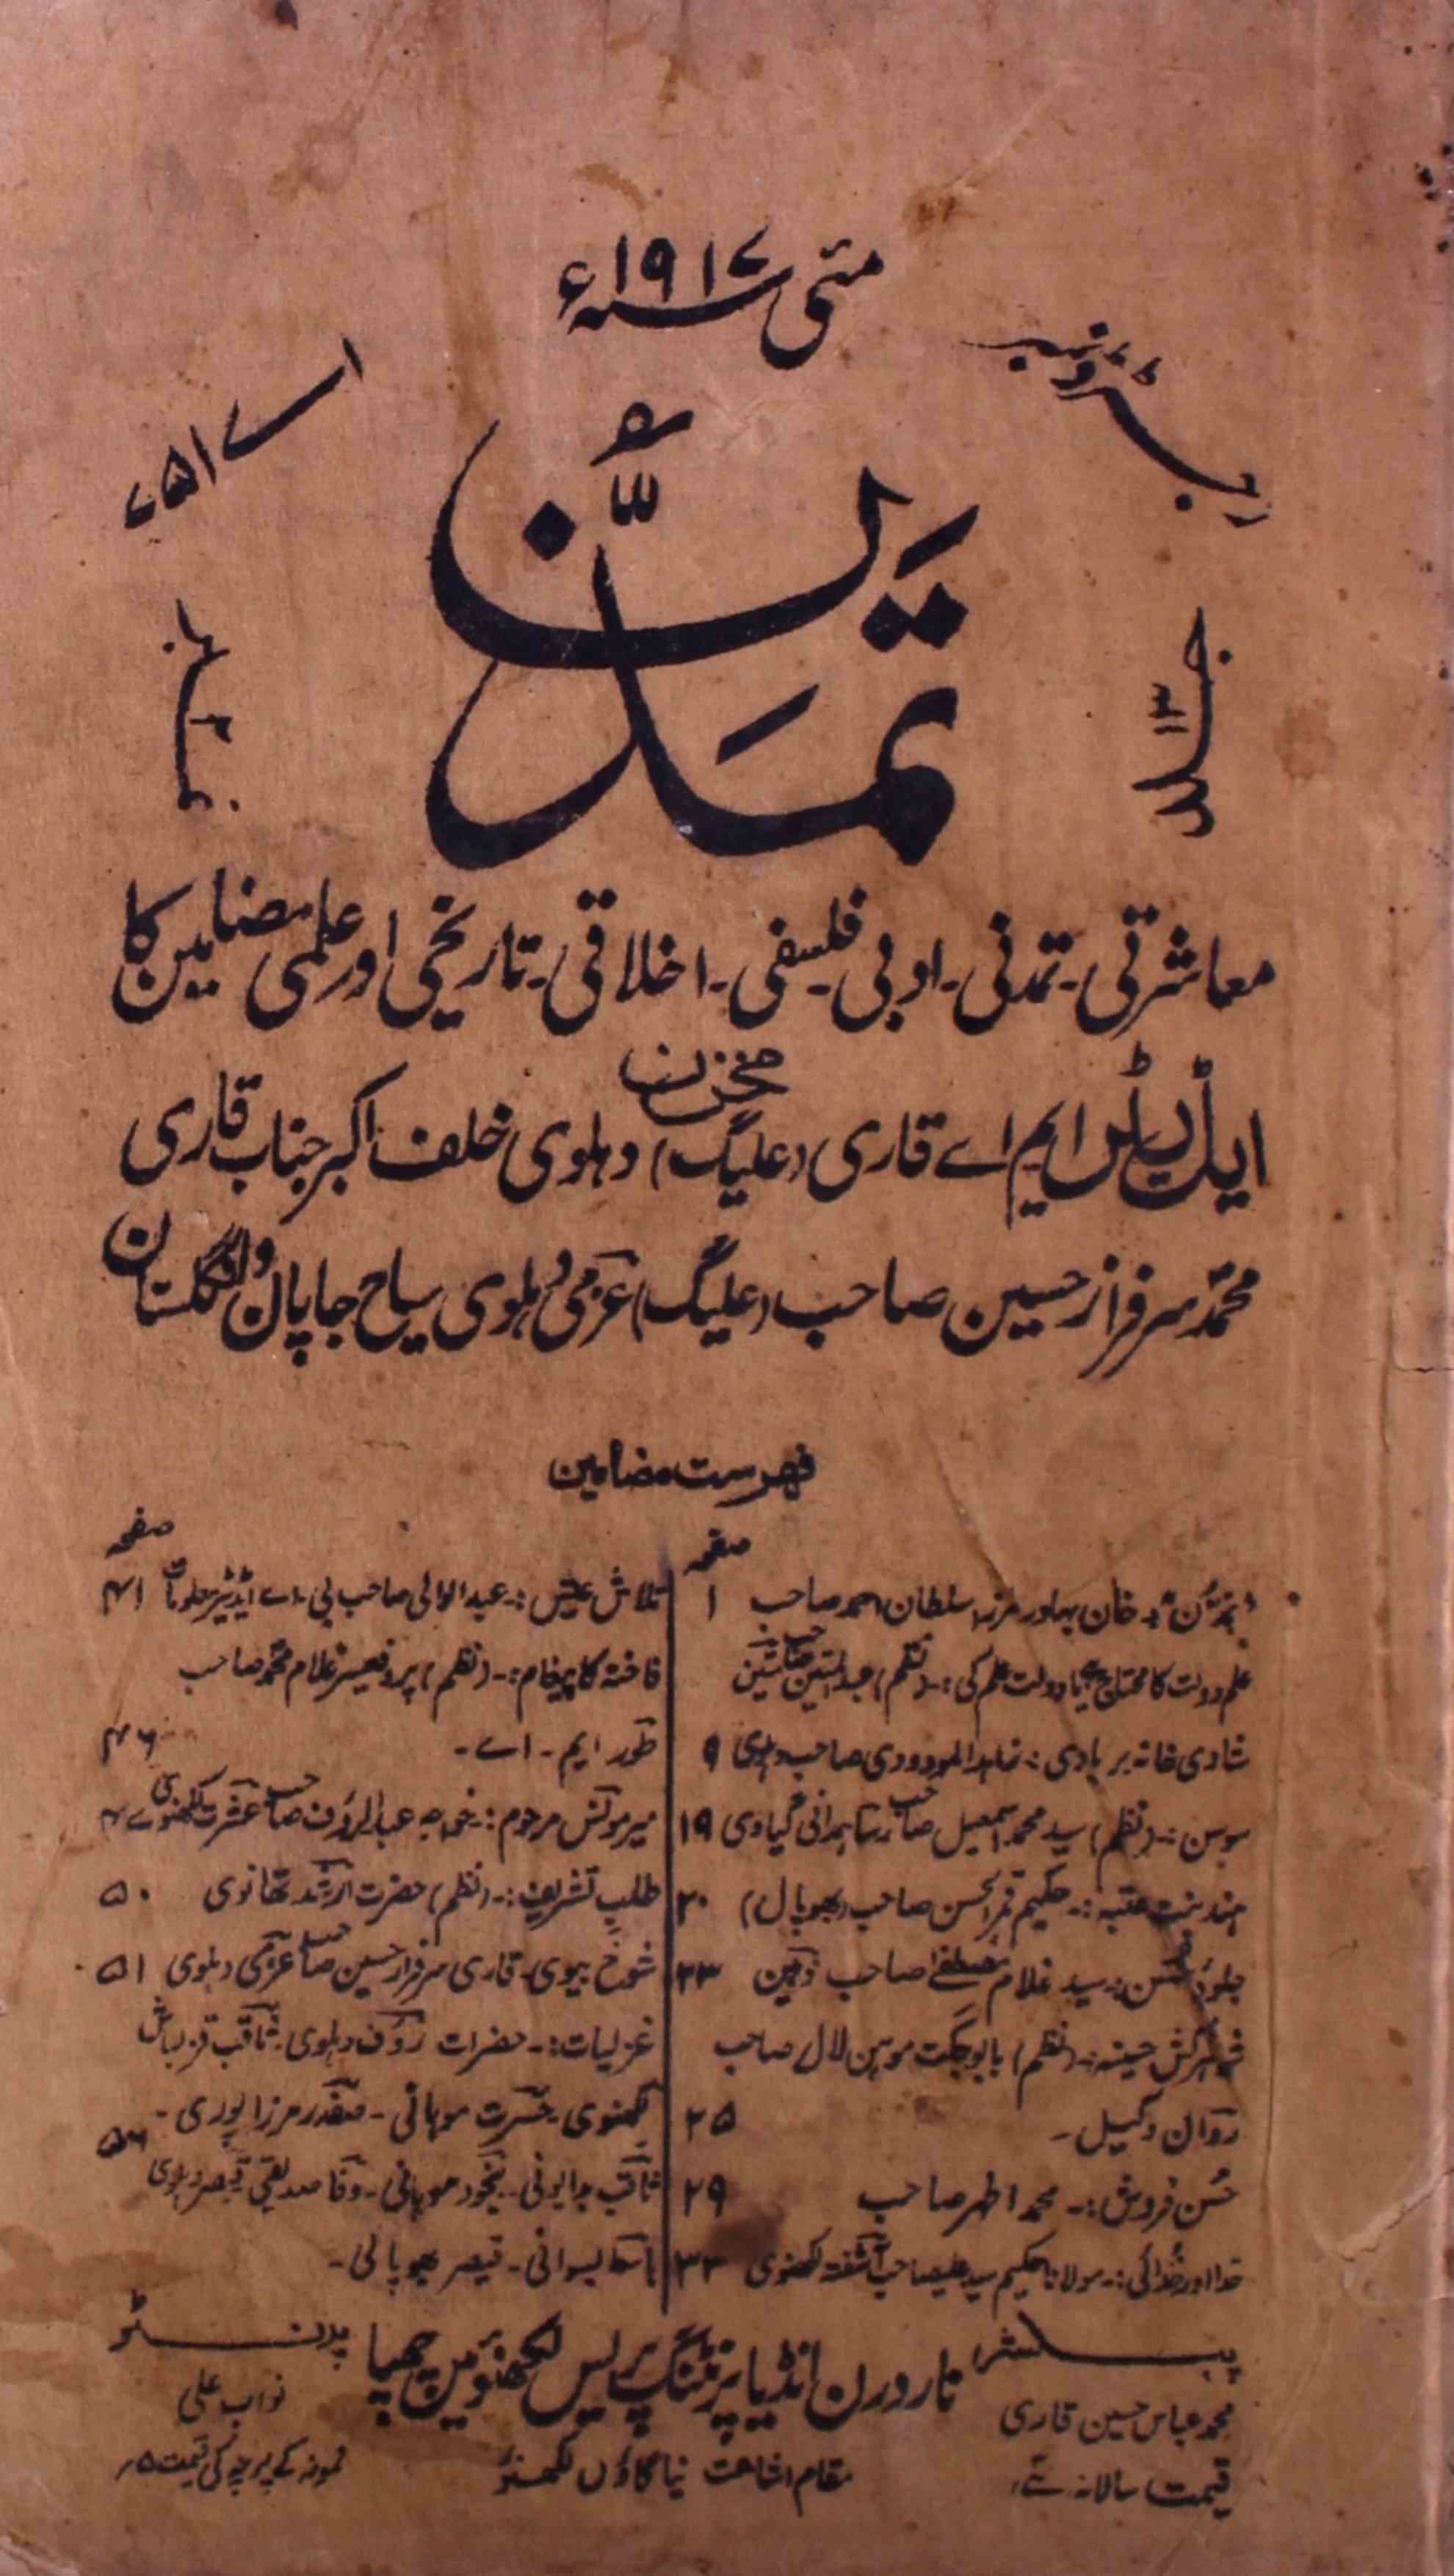 مئی سنہ ۱۹۱۷ء
رجسٹرڈ نمبر
اے ۵۱۷
تمدّن
جلد ۱۳
نمبر ۴
معاشرتی۔ تمدنی۔ ادبی۔ فلسفی۔ اخلاقی۔ تاریخی اور علمی مضامین کا
مخزن
ایم اے قاری (علیگ) دہلوی خلف اکبر جناب قاری
محمد سرفراز حسین صاحب (علیگ) عزمی دہلوی سیاح جاپان و انگلستان
فہرست مضامین
صفحہ
تمدّن:۔ خان بہادر مرزا سلطان احمد صاحب ۱
علم دولت کا محتاج ہے یا دولت علم کی:۔ (نظم) عبدالمتین صاحب متین
شادی خانہ بربادی:۔ زاہد المودودی صاحب دہلوی ۹
موہن:۔ (نظم) سید محمد اسمعیل صاحب رسا ہمدانی گیاوی ۱۹
ہند بنت عتبہ:۔ حکیم قمر الحسن صاحب (بھوپال) ۲۰
جلوۂ حسن:۔ سید غلام مصطفےٰ صاحب ذہین ۲۳
شوہر کش حسینہ:۔ (نظم) بابو جگت موہن لال صاحب
رواں وکیل۔ ۲۵
حُسن فروش:۔ محمد اطہر صاحب ۲۹
خدا اور خدائی:۔ مولانا حکیم سید علی صاحب آشفتہ لکھنوی ۳۳
صفحہ
تلاش عیش:۔ عبد الوالی صاحب بی۔ اے ایڈیٹر معلومات ۴۱
فاختہ کا پیغام:۔ (نظم) پروفیسر غلام محمد صاحب
طور ایم۔ اے۔ ۴۶
میر مونس مرحوم:۔ خواجہ عبدالرؤف صاحب عشرت لکھنوی ۴۷
طلب تشریف:۔ (نظم) حضرت ارشد تھانوی ۵۰
شوخ بیوی۔ قاری سرفراز حسین صاحب عزمی دہلوی ۵۱
غزلیات:۔ حضرات رؤف دہلوی۔ ثاقب قزلباش
لکھنوی۔ حسرت موہانی۔ صفدر مرزا پوری۔ ۵۶
ثاقب بدایونی۔ بیخود موہانی۔ وفا صدیقی قیصر دہلوی
باسط بسوانی۔ قیصر بھوپالی۔
پبلشر
محمد عباس حسین قاری
قیمت سالانہ
ناردرن انڈیا پرنٹنگ پریس لکھنؤ میں چھپا
مقام اشاعت نیا گاؤں لکھنؤ
پرنٹر
نواب علی
نمونہ کے پرچہ کی قیمت ۵؍